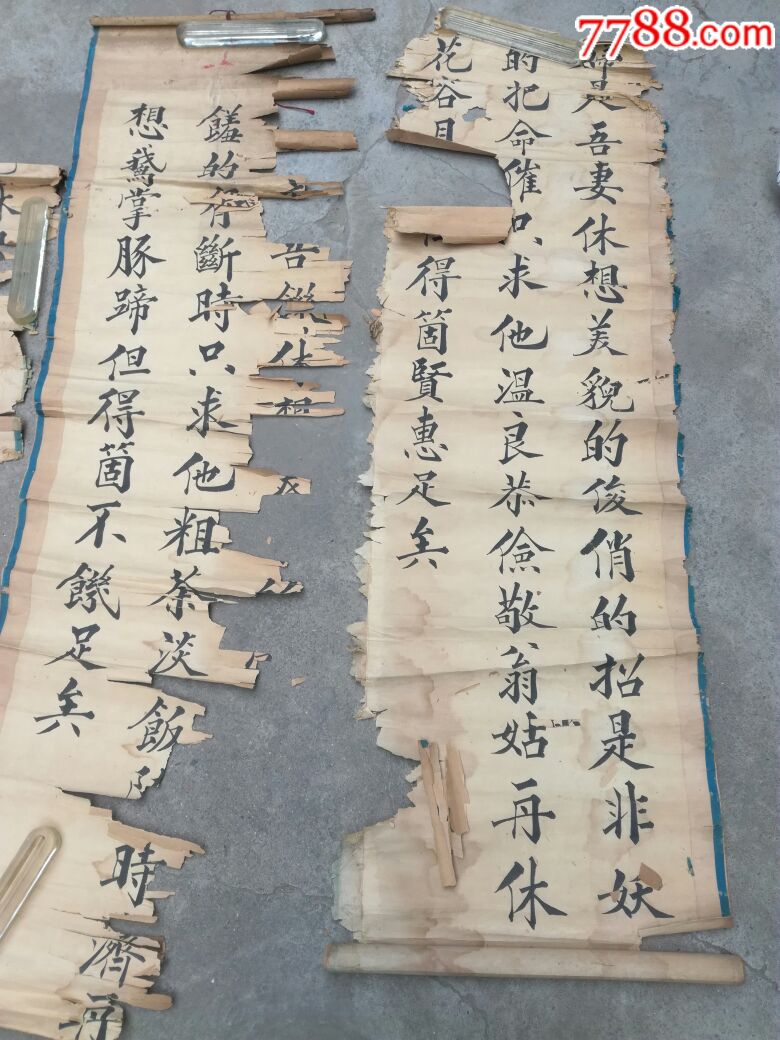 7788.com
是吾妻休想美貌的俊俏的招是非妖
的把命催只求他溫良恭儉敬翁姑再休
花容月
得箇賢惠足矣
吾饑休想
饈的有斷時只求他粗茶淡飯
時濟再
想鵞掌豚蹄但得箇不饑足矣